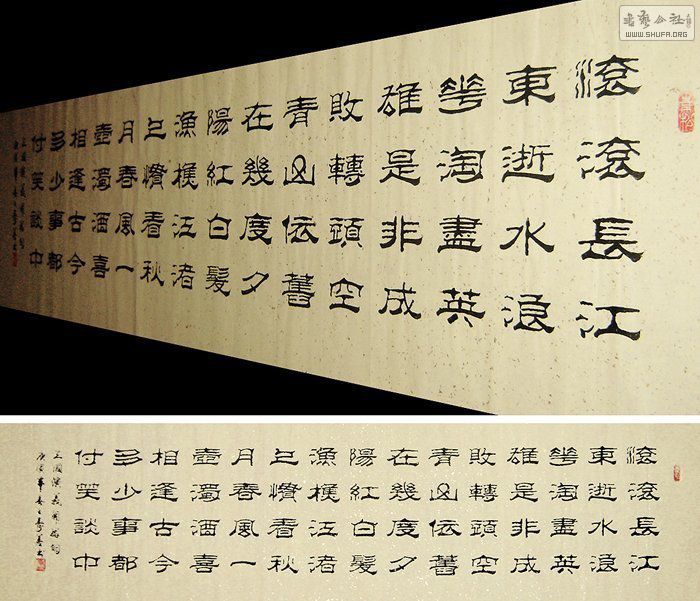 書藝公社
WWW.SHUFA.ORG
滚滚長江
東逝水浪
華淘盡英
雄是非成
敗轉頭空
青山依舊
在幾度夕
陽紅白髮
漁樵江渚
上慣看秋
月春風一
壺濁酒喜
相逢古今
多少事都
付笑談中
三國演義
滚滚長江
東逝水浪
華淘盡英
雄是非成
敗轉頭空
青山依舊
在幾度夕
陽紅白髮
漁樵江渚
上慣看秋
月春風一
壺濁酒喜
相逢古今
多少事都
付笑談中
三國演義